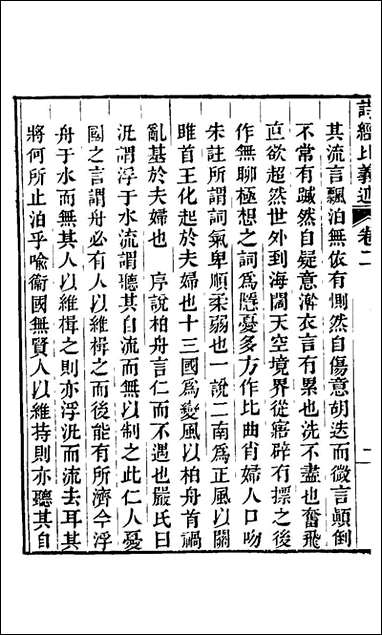 詩經比義述 卷二 二
其流言飄泊無依有惻然自傷意胡迭而微言顛倒
不常有蹴然自疑意澣衣言有累也洗不盡也奮飛
直欲超然世外到海闊天空境界從寤辟有摽之後
作無聊極想之詞爲隱憂多方作比曲肖婦人口吻
朱註所謂詞氣卑順柔弱也一說二南爲正風以關
雎首王化起於夫婦也十三國爲變風以柏舟首禍
亂基於夫婦也 序說柏舟言仁而不遇也嚴氏曰
汎謂浮于水流謂聽其自流而無以制之此仁人憂
國之言謂舟必有人以維楫之而後能有所濟今浮
舟于水而無其人以維楫之則亦浮汎而流去耳其
將何所止泊乎喩衞國無賢人以維持則亦聽其自